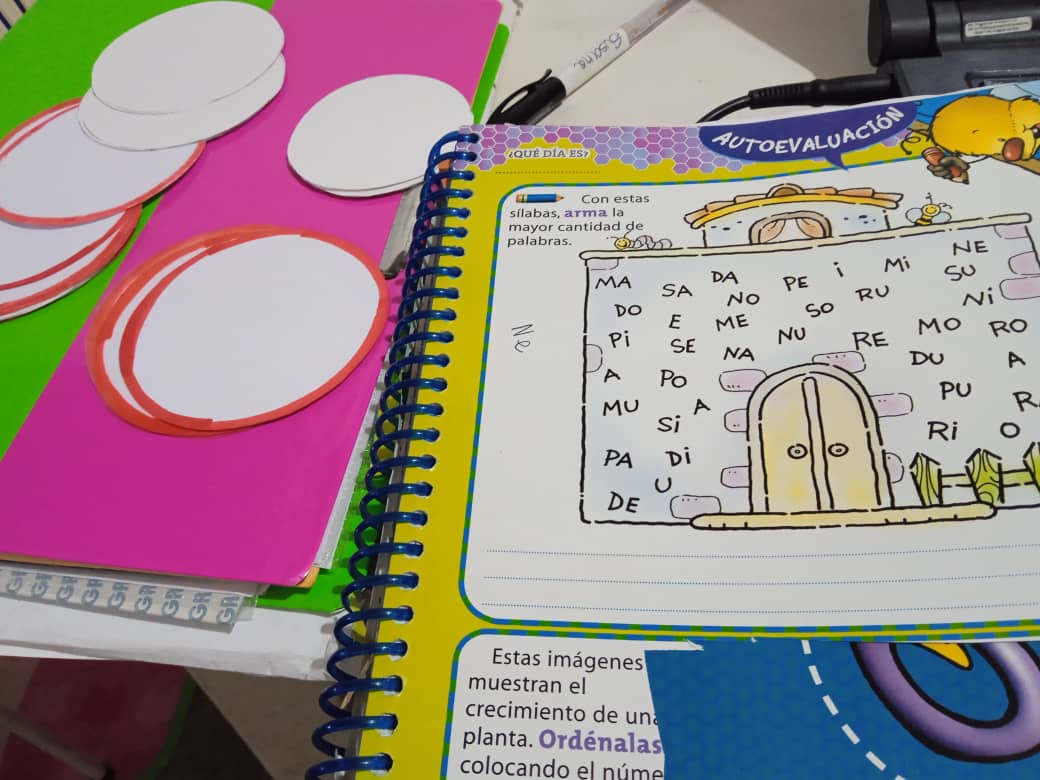 Susana
¿QUÉ DÍA ES?
AUTOEVALUACIÓN
Con estas
sílabas, arma la
mayor cantidad de
palabras.
MA SA DA NO PE i Mi NE
DO E ME SO RU SU Ni
Pi SE NA NU RE MO RO
A PO DU A
MU A PU
Si Ri O
PA Di
U
DE
Ne
GR GR GR GR GR GR GR GR
Estas imágenes
muestran el
crecimiento de una
planta. Ordénalas
colocando el núme